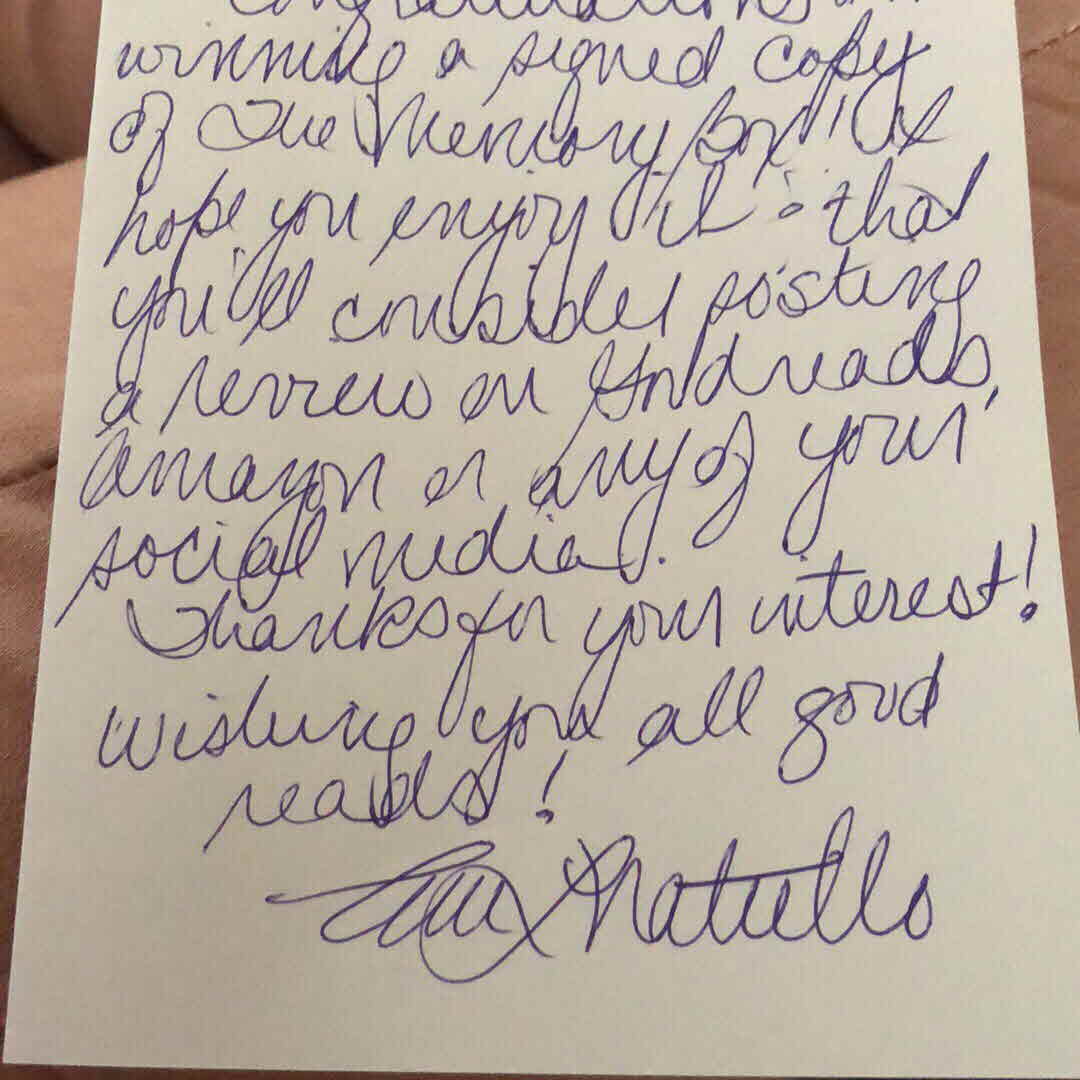 Congratulations on
winning a signed copy
of The Memory Box! I
hope you enjoy it & that
you'll consider posting
a review on Goodreads,
Amazon or any of your
social media.
Thanks for your interest!
Wishing you all good
reads!
Natiello